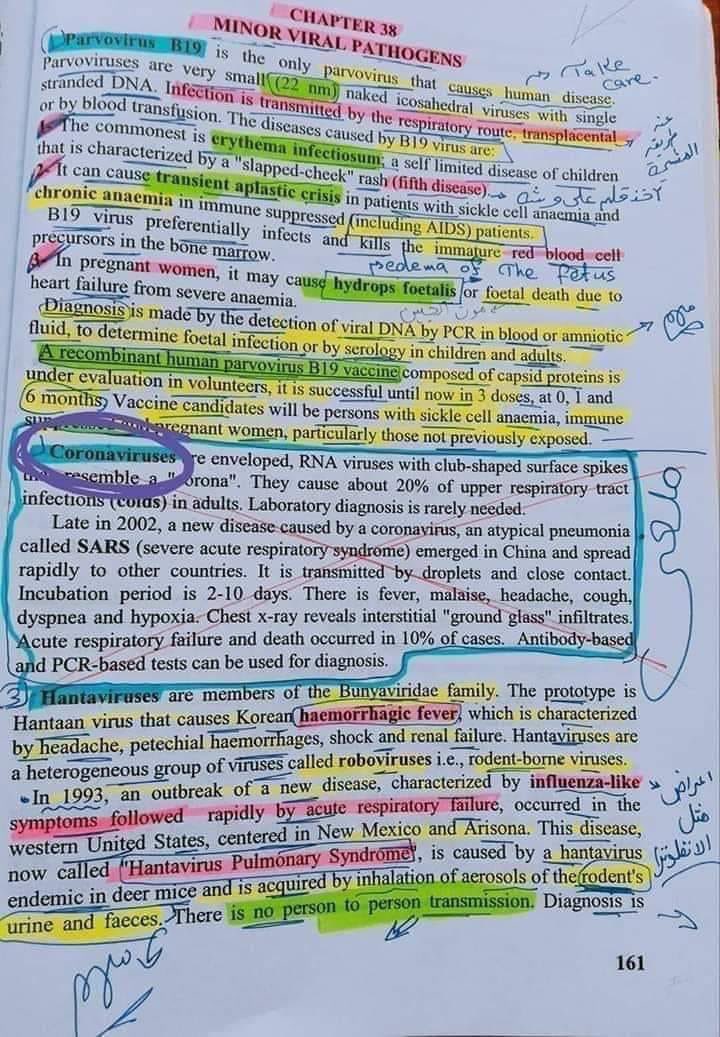 CHAPTER 38
MINOR VIRAL PATHOGENS
Parvovirus B19 is the only parvovirus that causes human disease.
Take
care.
Parvoviruses are very small (22 nm) naked icosahedral viruses with single
stranded DNA. Infection is transmitted by the respiratory route, transplacental
or by blood transfusion. The diseases caused by B19 virus are:
عن
طريق
المشيمة
1. The commonest is erythema infectiosum; a self limited disease of children
that is characterized by a "slapped-cheek" rash (fifth disease).
2. It can cause transient aplastic crisis in patients with sickle cell anaemia and
chronic anaemia in immune suppressed (including AIDS) patients.
B19 virus preferentially infects and kills the immature red blood cell
precursors in the bone marrow.
oedema of The Fetus
3. In pregnant women, it may cause hydrops foetalis or foetal death due to
heart failure from severe anaemia.
Diagnosis is made by the detection of viral DNA by PCR in blood or amniotic
fluid, to determine foetal infection or by serology in children and adults.
مهم
A recombinant human parvovirus B19 vaccine composed of capsid proteins is
under evaluation in volunteers, it is successful until now in 3 doses, at 0, 1 and
6 months. Vaccine candidates will be persons with sickle cell anaemia, immune
pregnant women, particularly those not previously exposed.
Coronaviruses are enveloped, RNA viruses with club-shaped surface spikes
resemble a "corona". They cause about 20% of upper respiratory tract
infections (colds) in adults. Laboratory diagnosis is rarely needed.
ملغي
Late in 2002, a new disease caused by a coronavirus, an atypical pneumonia
called SARS (severe acute respiratory syndrome) emerged in China and spread
rapidly to other countries. It is transmitted by droplets and close contact.
Incubation period is 2-10 days. There is fever, malaise, headache, cough,
dyspnea and hypoxia. Chest x-ray reveals interstitial "ground glass" infiltrates.
Acute respiratory failure and death occurred in 10% of cases. Antibody-based
and PCR-based tests can be used for diagnosis.
3) Hantaviruses are members of the Bunyaviridae family. The prototype is
Hantaan virus that causes Korean haemorrhagic fever, which is characterized
by headache, petechial haemorrhages, shock and renal failure. Hantaviruses are
a heterogeneous group of viruses called roboviruses i.e., rodent-borne viruses.
In 1993, an outbreak of a new disease, characterized by influenza-like
symptoms followed rapidly by acute respiratory failure, occurred in the
western United States, centered in New Mexico and Arisona. This disease,
now called "Hantavirus Pulmonary Syndrome", is caused by a hantavirus
endemic in deer mice and is acquired by inhalation of aerosols of the rodent's
urine and faeces. There is no person to person transmission. Diagnosis is
اعراض
مثل
الانفلونزا
مهم
161